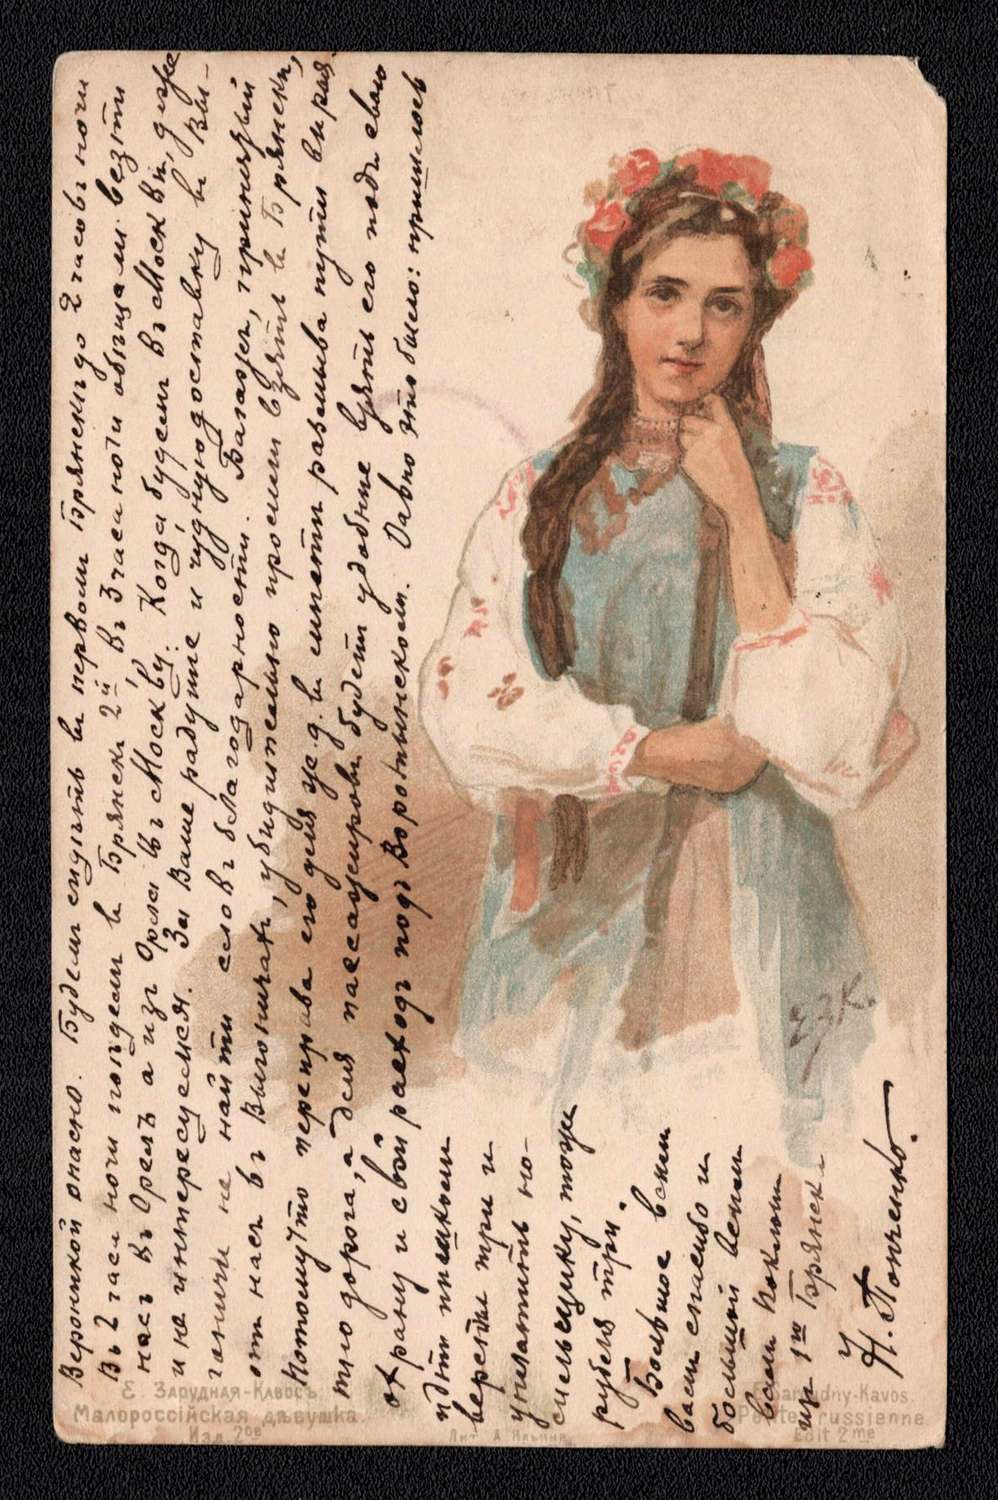 Вероникой опасно. Будем сидѣть въ первомъ Брянскѣ до 2 часовъ ночи
Въ 2 часа ночи поѣдем въ Брянск 2й, въ 3 часа ночи обѣщали везти
насъ въ Орелъ а изъ Орла въ Москву. Когда будемъ въ Москвѣ, даже
и не интересуемся. За Ваше радушіе и чудную доставку въ Вы-
гоничи не найти словъ благодарности. Багажъ, принятый
от насъ въ Выгоничахъ, убѣдительно просили взять въ Брянскѣ,
потому что переправа его для ж. д. въ мѣсти размыва пути вираж
тно дорога, а для пассажировъ будетъ удобнѣе взять его подъ свою
охрану и свой расходъ подъ Воротынскомъ. Давно это было: пришлось
идти пѣшкомъ
версты три и
уплатить но-
сильщику, тоже
рубля три.
Большое всѣмъ
вамъ спасибо и
большой всѣмъ
вамъ поклонъ
изъ 1го Брянска
Н. Панченко.
Е. З. К.
Е. Зарудная-Кавосъ.
Малороссійская дѣвушка.
Изд. 2ое
Лит. А. Ильина
E. Sarudny-Kavos
Petite russienne.
Edit 2me